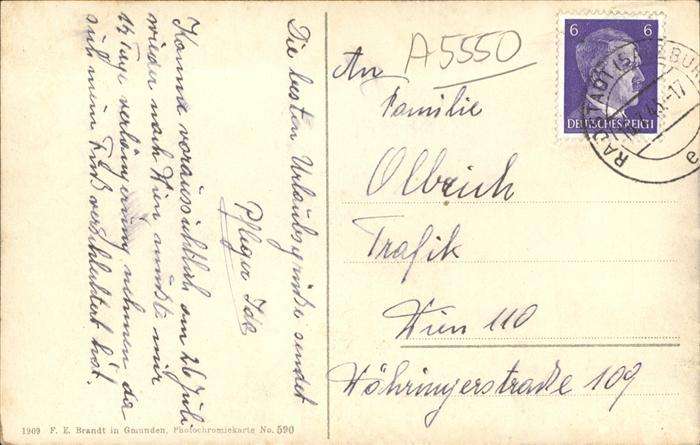 Die besten Urlaubsgrüße sendet
Pfleger Ida
Komme voraussichtlich am 26 Juli
wieder nach Wien mußte mir
14 Tage verlängerung nehmen da
sich mein Fuß verschlechtert hat.
A5550
An
Familie
Olbrich
Trafik
Wien 110
Währingerstraße 109
6 6
DEUTSCHES REICH
RADSTADT (SALZBU
-17
a
1909 F. E. Brandt in Gmunden, Photochromiekarte No. 590